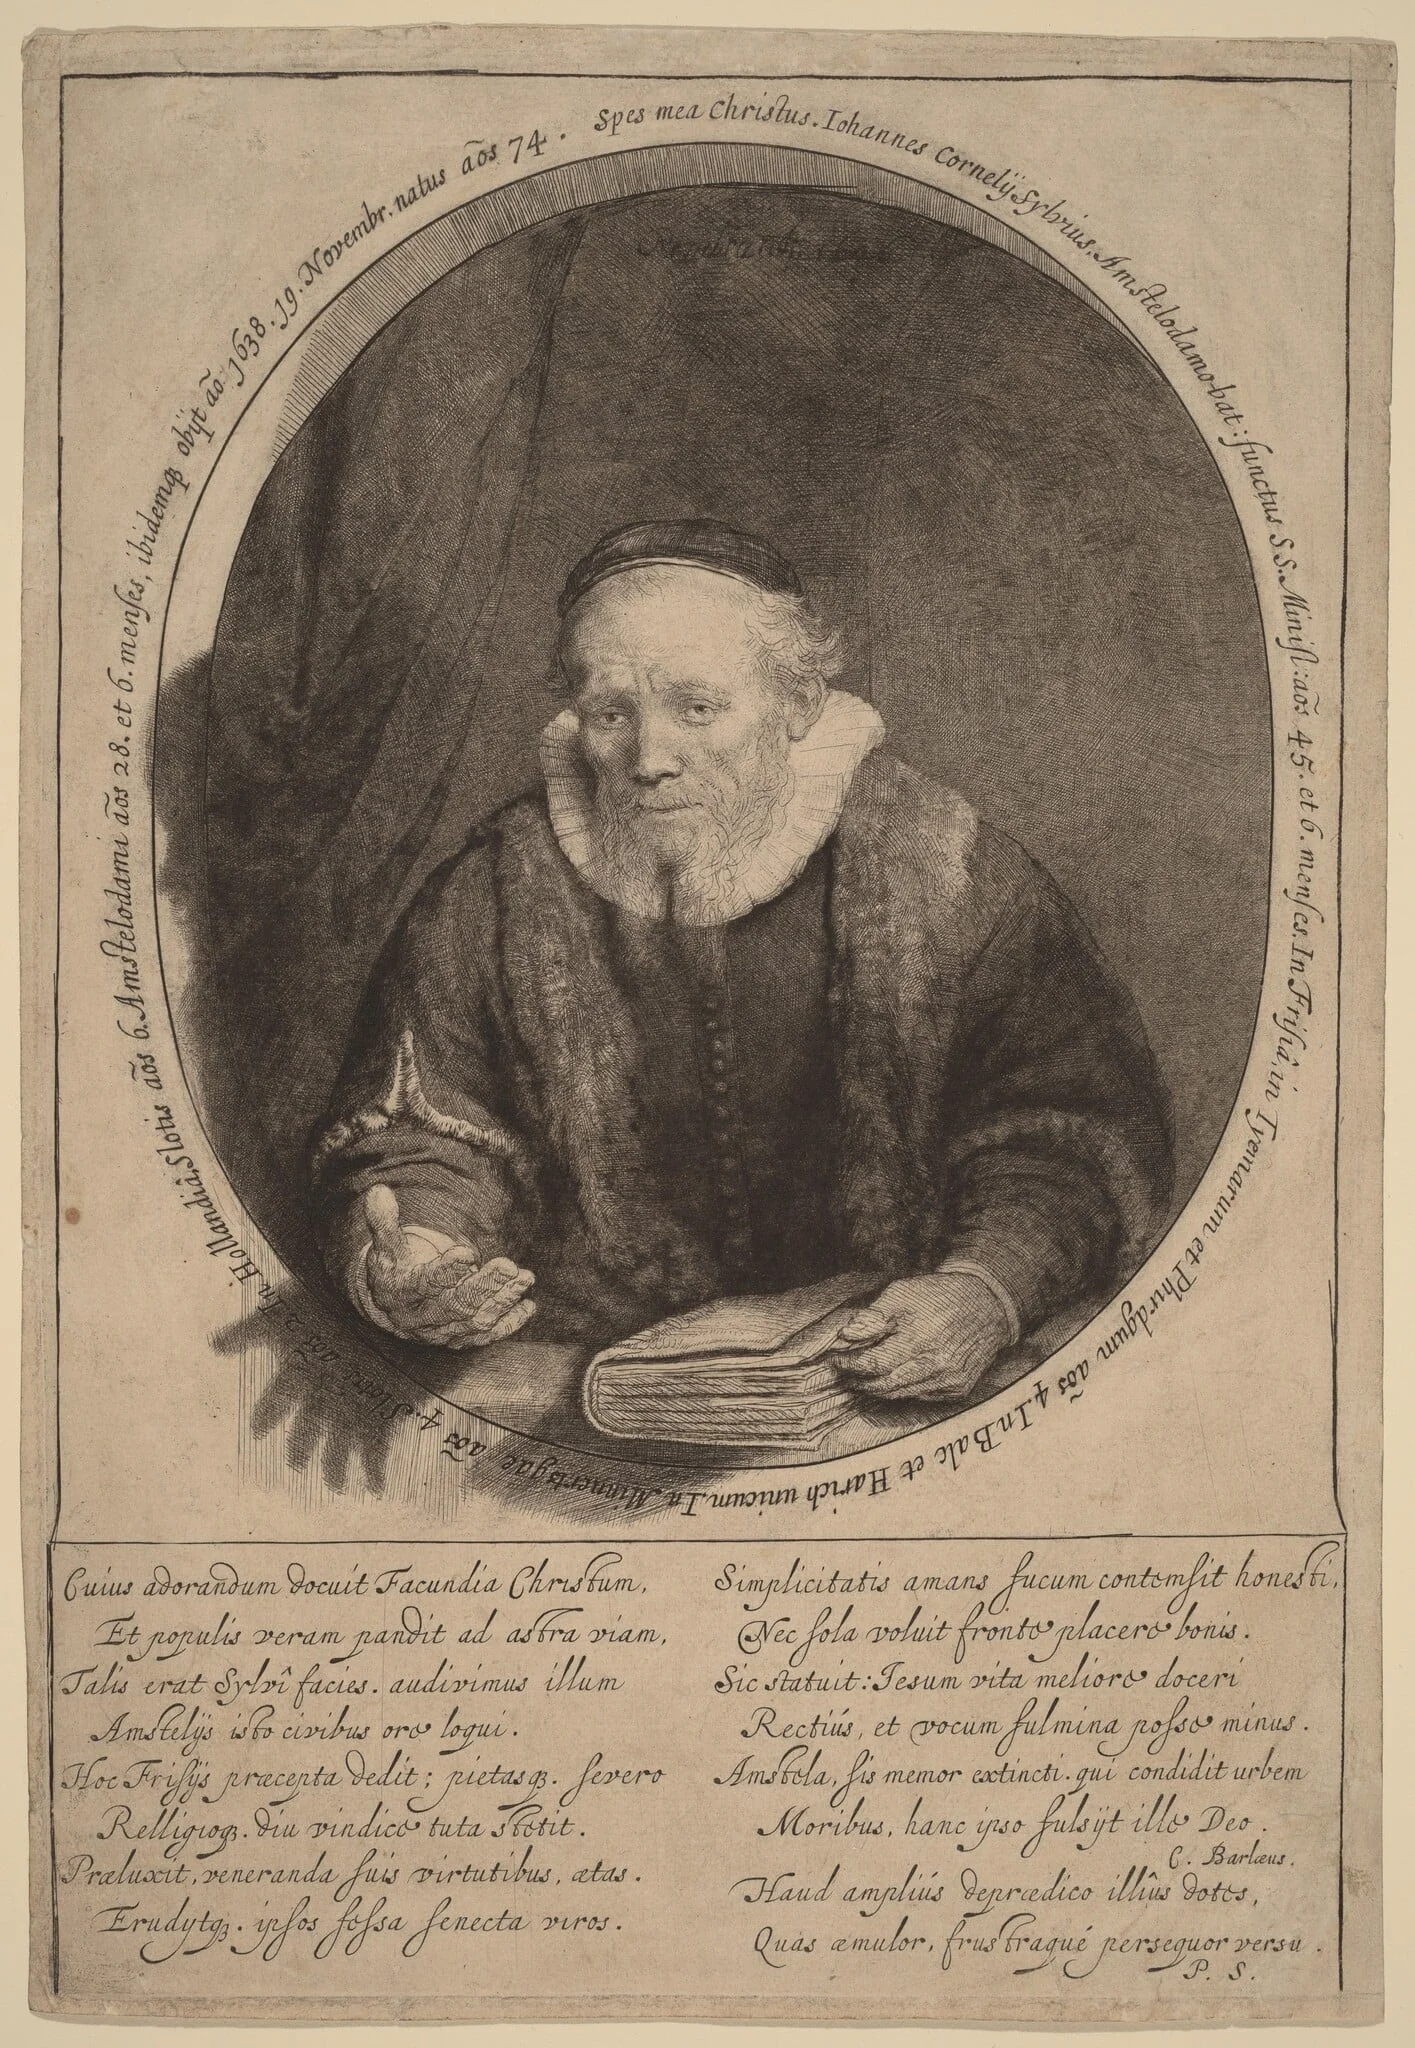 Spes mea Christus. Iohannes Cornelÿ Sylvius, Amstelodamo-bat: functus S.S. Minist: aōs 45. et 6. menses. In Frisiâ, in Tyemarum et Phirdgum aōs 4. In Balc et Harich unicum. In Minnertsgae aōs 4. Sloten aōs 2. In Hollandiâ, Slotis aōs 6. Amstelodami aōs 28. et 6. menses, ibidemqꝫ obÿt aō: 1638. 19. Novembr. natus aōs 74.
Rembrandt
Cuius adorandum docuit Facundia Christum,
Et populis veram pandit ad astra viam,
Talis erat Sylvî facies. audivimus illum
Amstelÿs isto civibus ore loqui.
Hoc Frisÿs præcepta dedit; pietasqꝫ. severo
Relligioqꝫ. diu vindice tuta stetit.
Præluxit, veneranda suis virtutibus, ætas.
Erudytqꝫ. ipsos fessa senecta viros.
Simplicitatis amans fucum contemsit honesti,
Nec sola voluit fronte placere bonis.
Sic statuit: Iesum vita meliore doceri
Rectiús, et vocum fulmina posse minus.
Amstela, sis memor extincti. qui condidit urbem
Moribus, hanc ipso fulsÿt ille Deo.
C. Barlæus.
Haud ampliús deprædico illîus dotes,
Quas æmulor, frustraqué persequor versu.
P. S.